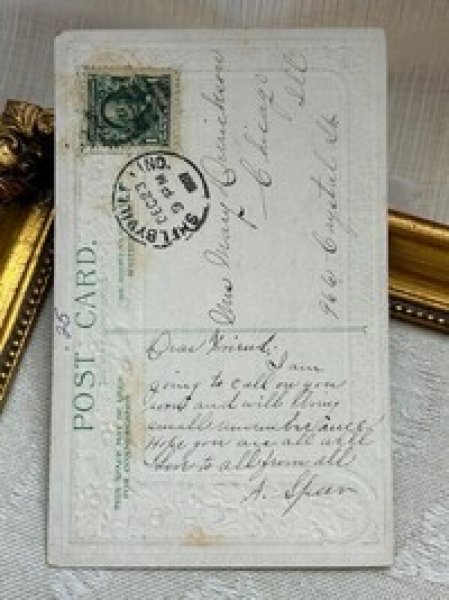 POST CARD.
THIS SPACE MAY BE USED
FOR CORRESPONDENCE
SHELBYVILLE, IND.
DEC 23
9 PM
1908
Mrs Mary
Chicago
Ill
966 Crystal St
.25
Dear Friend.
I am
going to call on you
soon and will bring
small remembrance
Hope you are all well
love to all from all
A. Speer